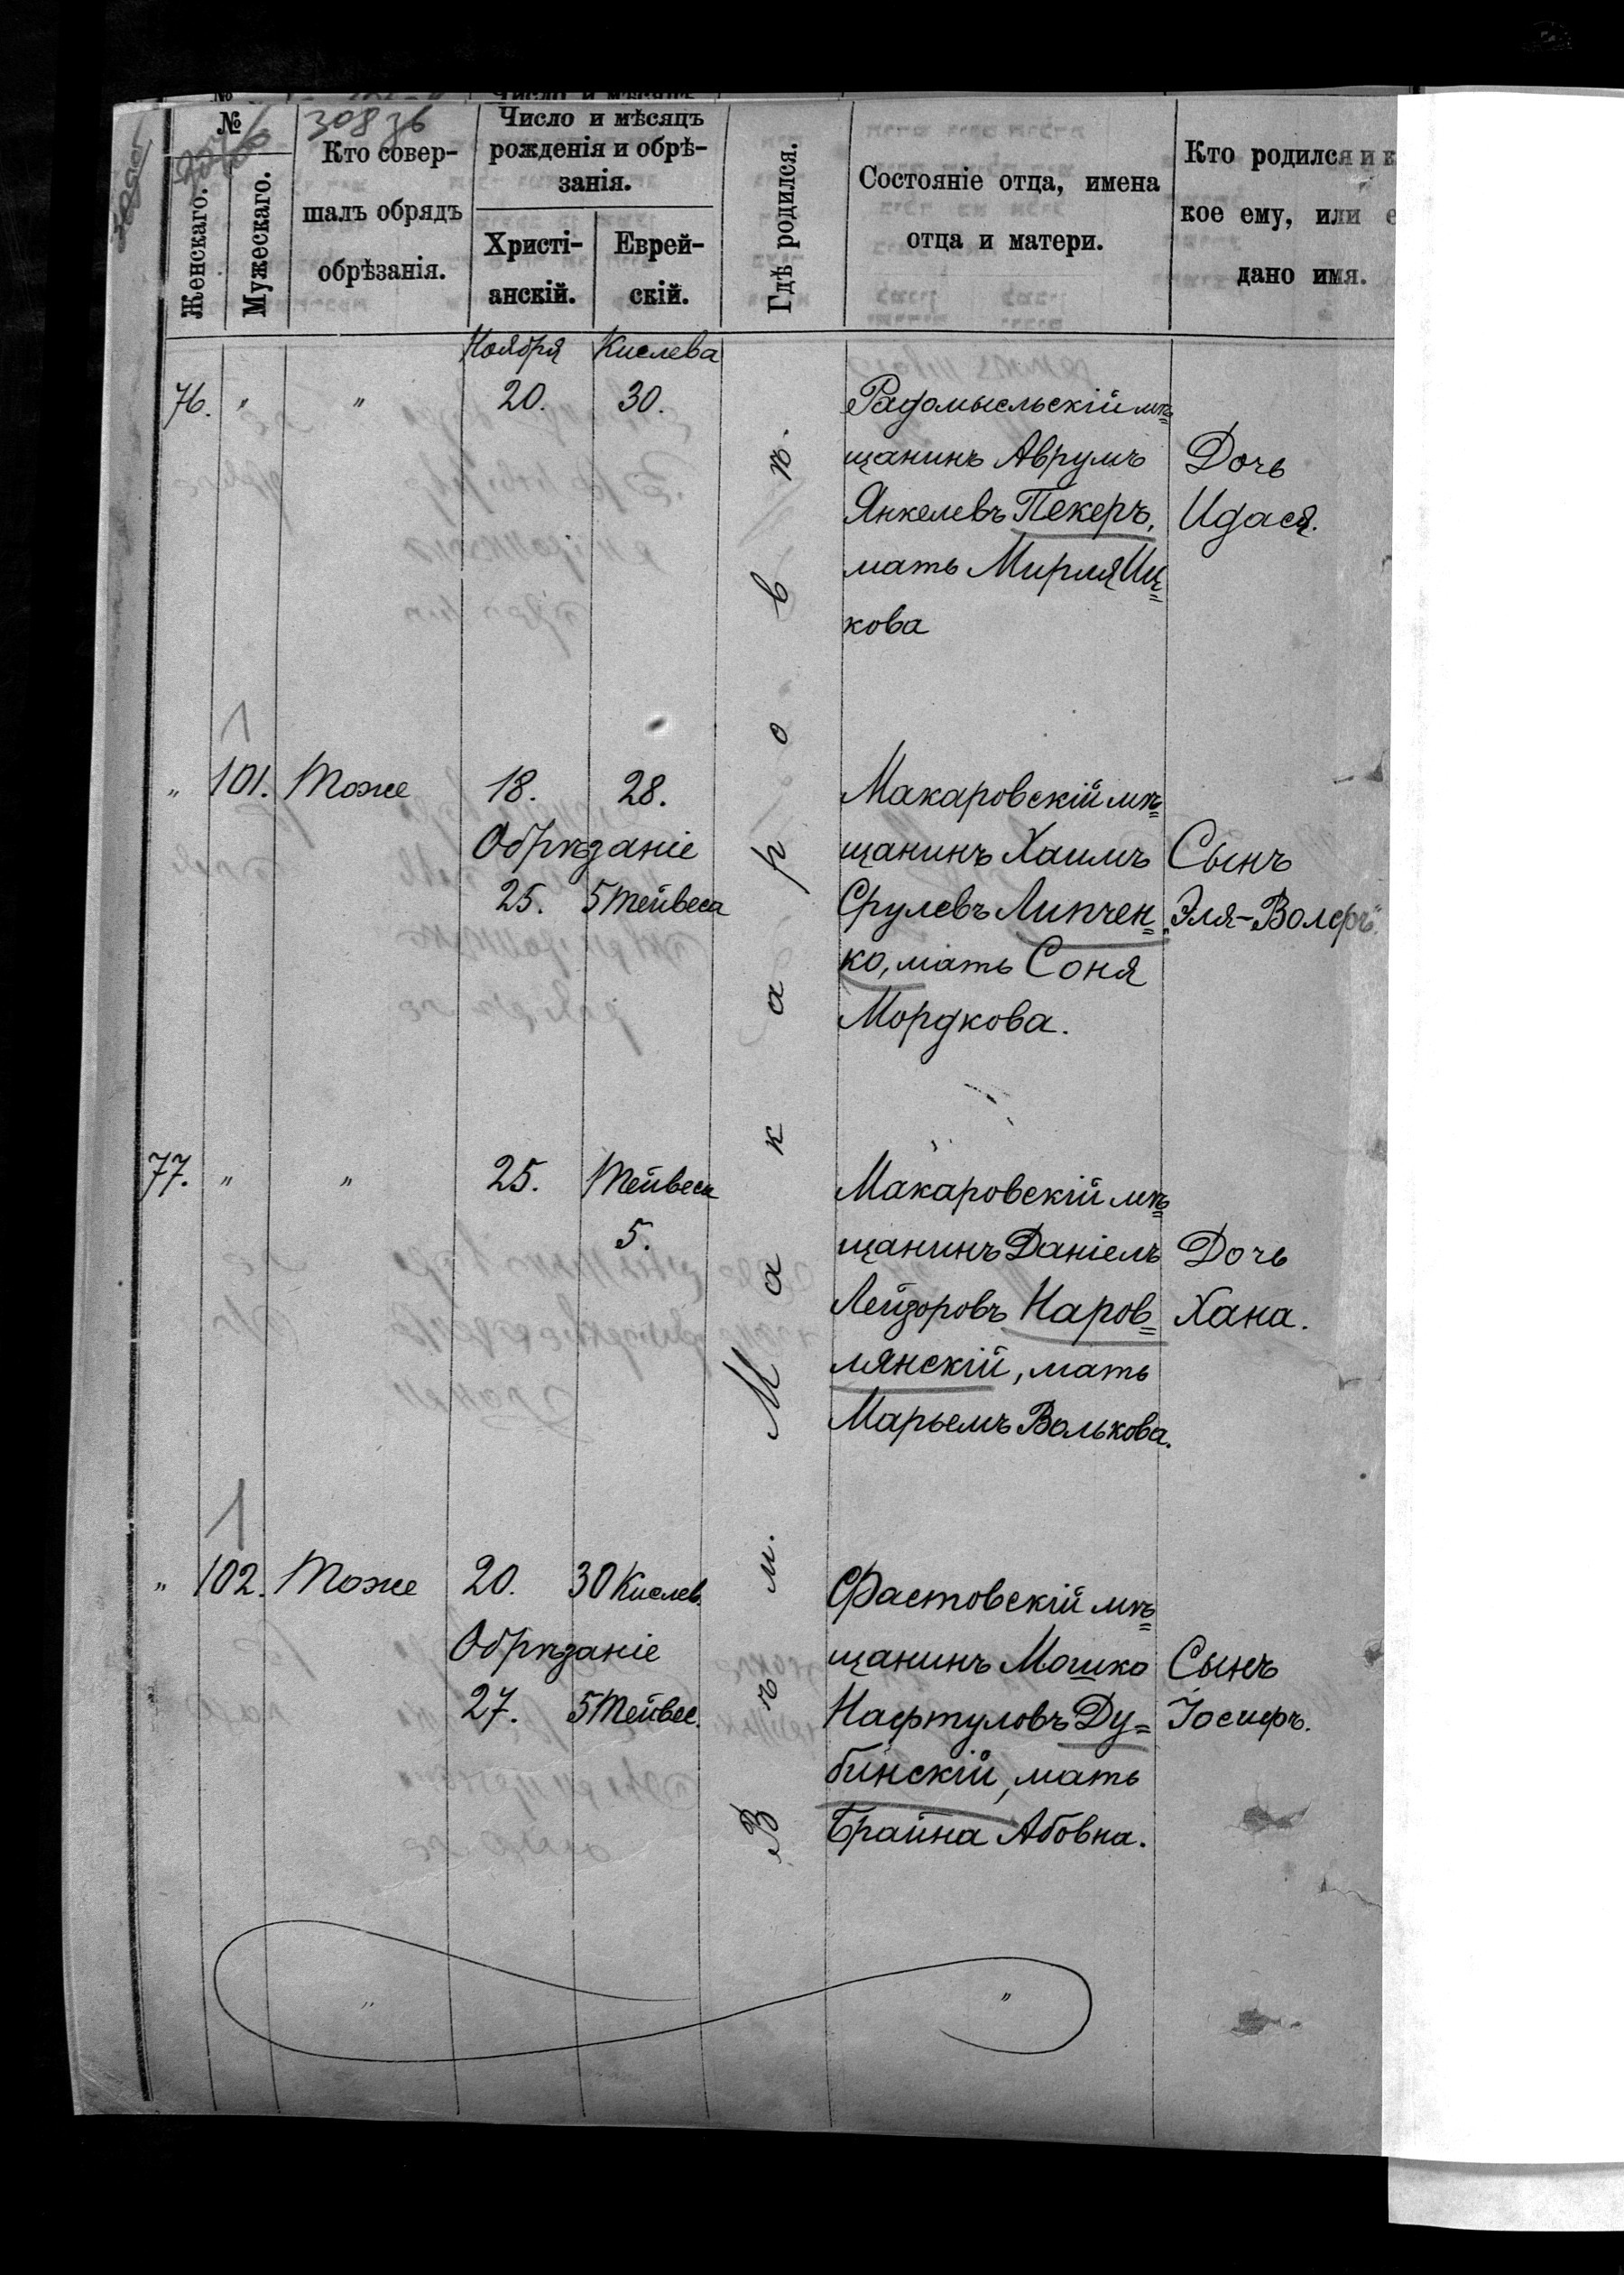 №
Женскаго.
Мужескаго.
Кто совер-
шалъ обрядъ
обрѣзанія.
Число и мѣсяцъ
рожденія и обрѣ-
занія.
Христі-
анскій.
Еврей-
скій.
Гдѣ родился.
Состояніе отца, имена
отца и матери.
Кто родился и к
кое ему, или е
дано имя.
Въ м. Макаровѣ.
Ноября Кислева
76. " " 20. 30.
Радомысльскій мѣ=
щанинъ Аврумъ
Янкелевъ Пекеръ,
мать Мирля Иц=
кова
Дочь
Идася.
" 101. Тоже 18. 28.
Обрѣзаніе
25. 5 Тейвеса
Макаровскій мѣ=
щанинъ Хаимъ
Срулевъ Липчен=
ко, мать Соня
Мордкова.
Сынъ
"Эля-Волфъ".
77. " " 25. Тейвеса
5.
Макаровскій мѣ=
щанинъ Даніелъ
Лейзоровъ Наров=
лянскій, мать
Марьемъ Волькова.
Дочь
Хана.
" 102. Тоже 20. 30 Кислев.
Обрѣзаніе
27. 5 Тейвес.
Фастовскій мѣ=
щанинъ Мошко
Нафтуловъ Ду=
бинскій, мать
Брайна Абовна.
Сынъ
Іосифъ.
" "